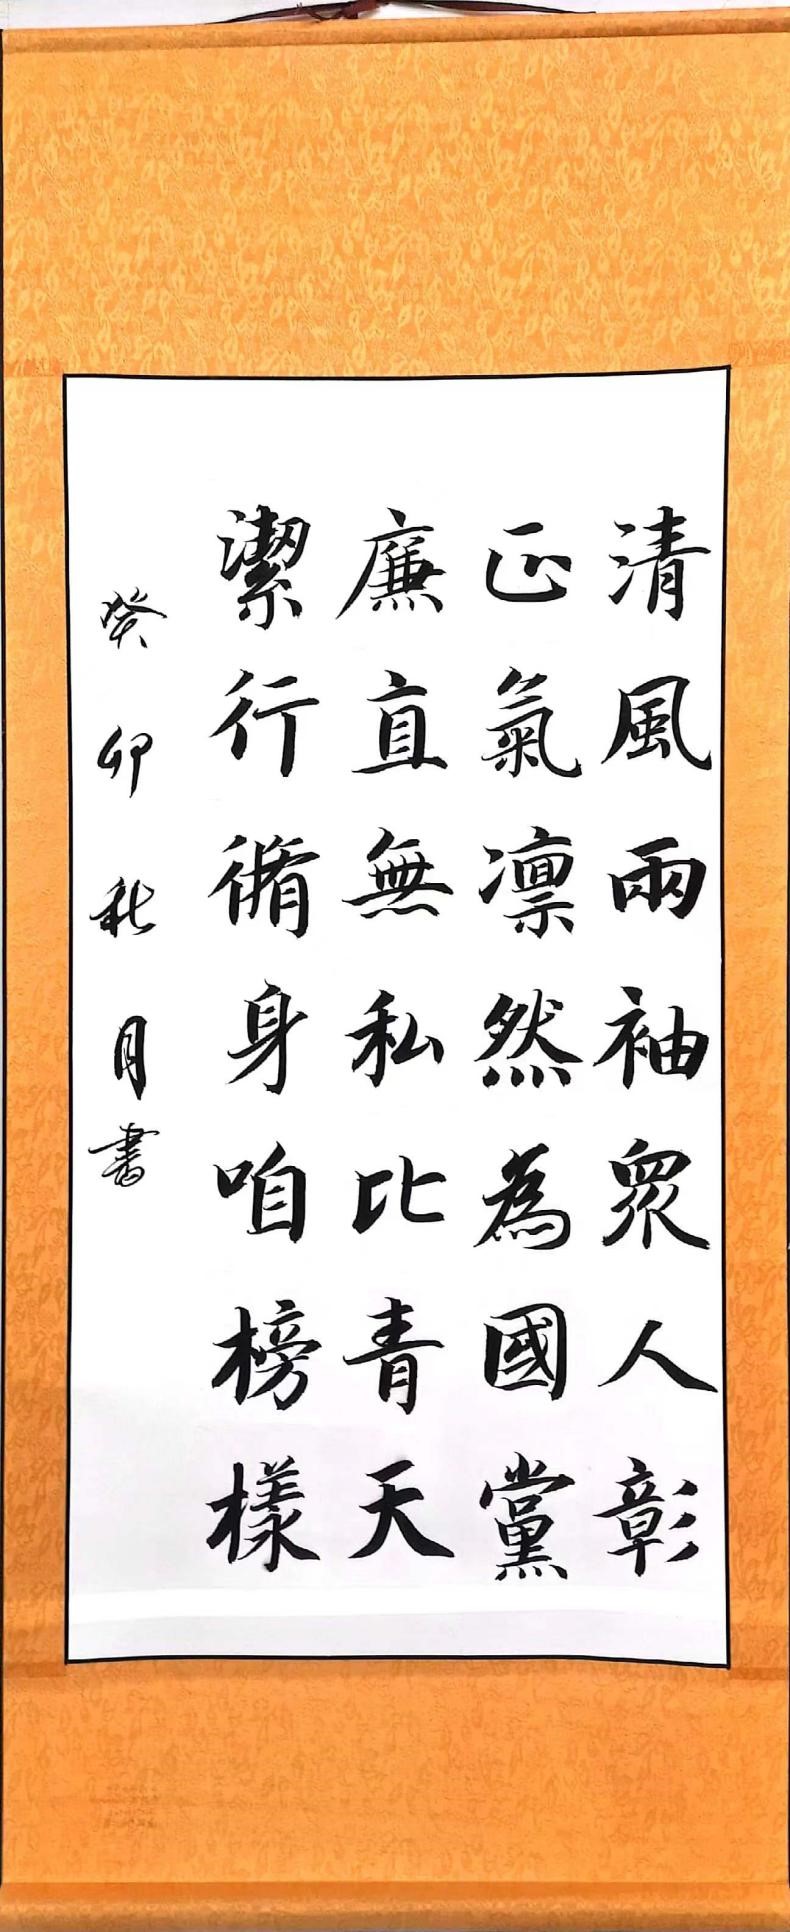 清風兩袖眾人彰
正氣凛然為國黨
廉直無私比青天
潔行脩身咱榜樣
癸卯秋月書